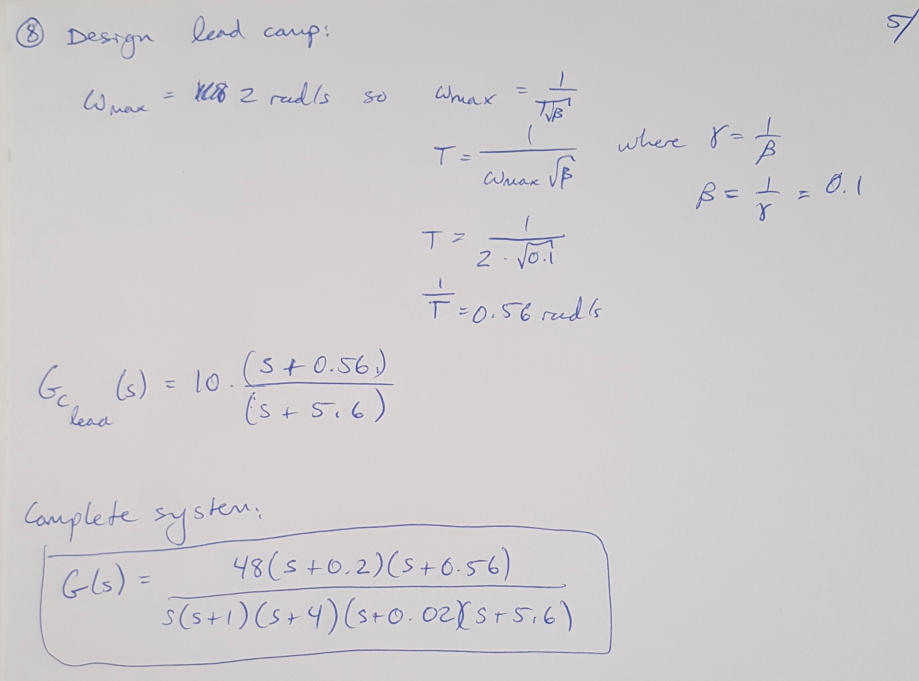 5/
⑧ Design lead comp:
ω_max = 2 rad/s so ω_max = 1/(T√β)
T = 1/(ω_max √β) where γ = 1/β
β = 1/γ = 0.1
T = 1/(2 · √0.1)
1/T = 0.56 rad/s
G_c_lead (s) = 10 · (s + 0.56)/(s + 5.6)
Complete system:
G(s) = 48(s+0.2)(s+0.56)/(s(s+1)(s+4)(s+0.02)(s+5.6))